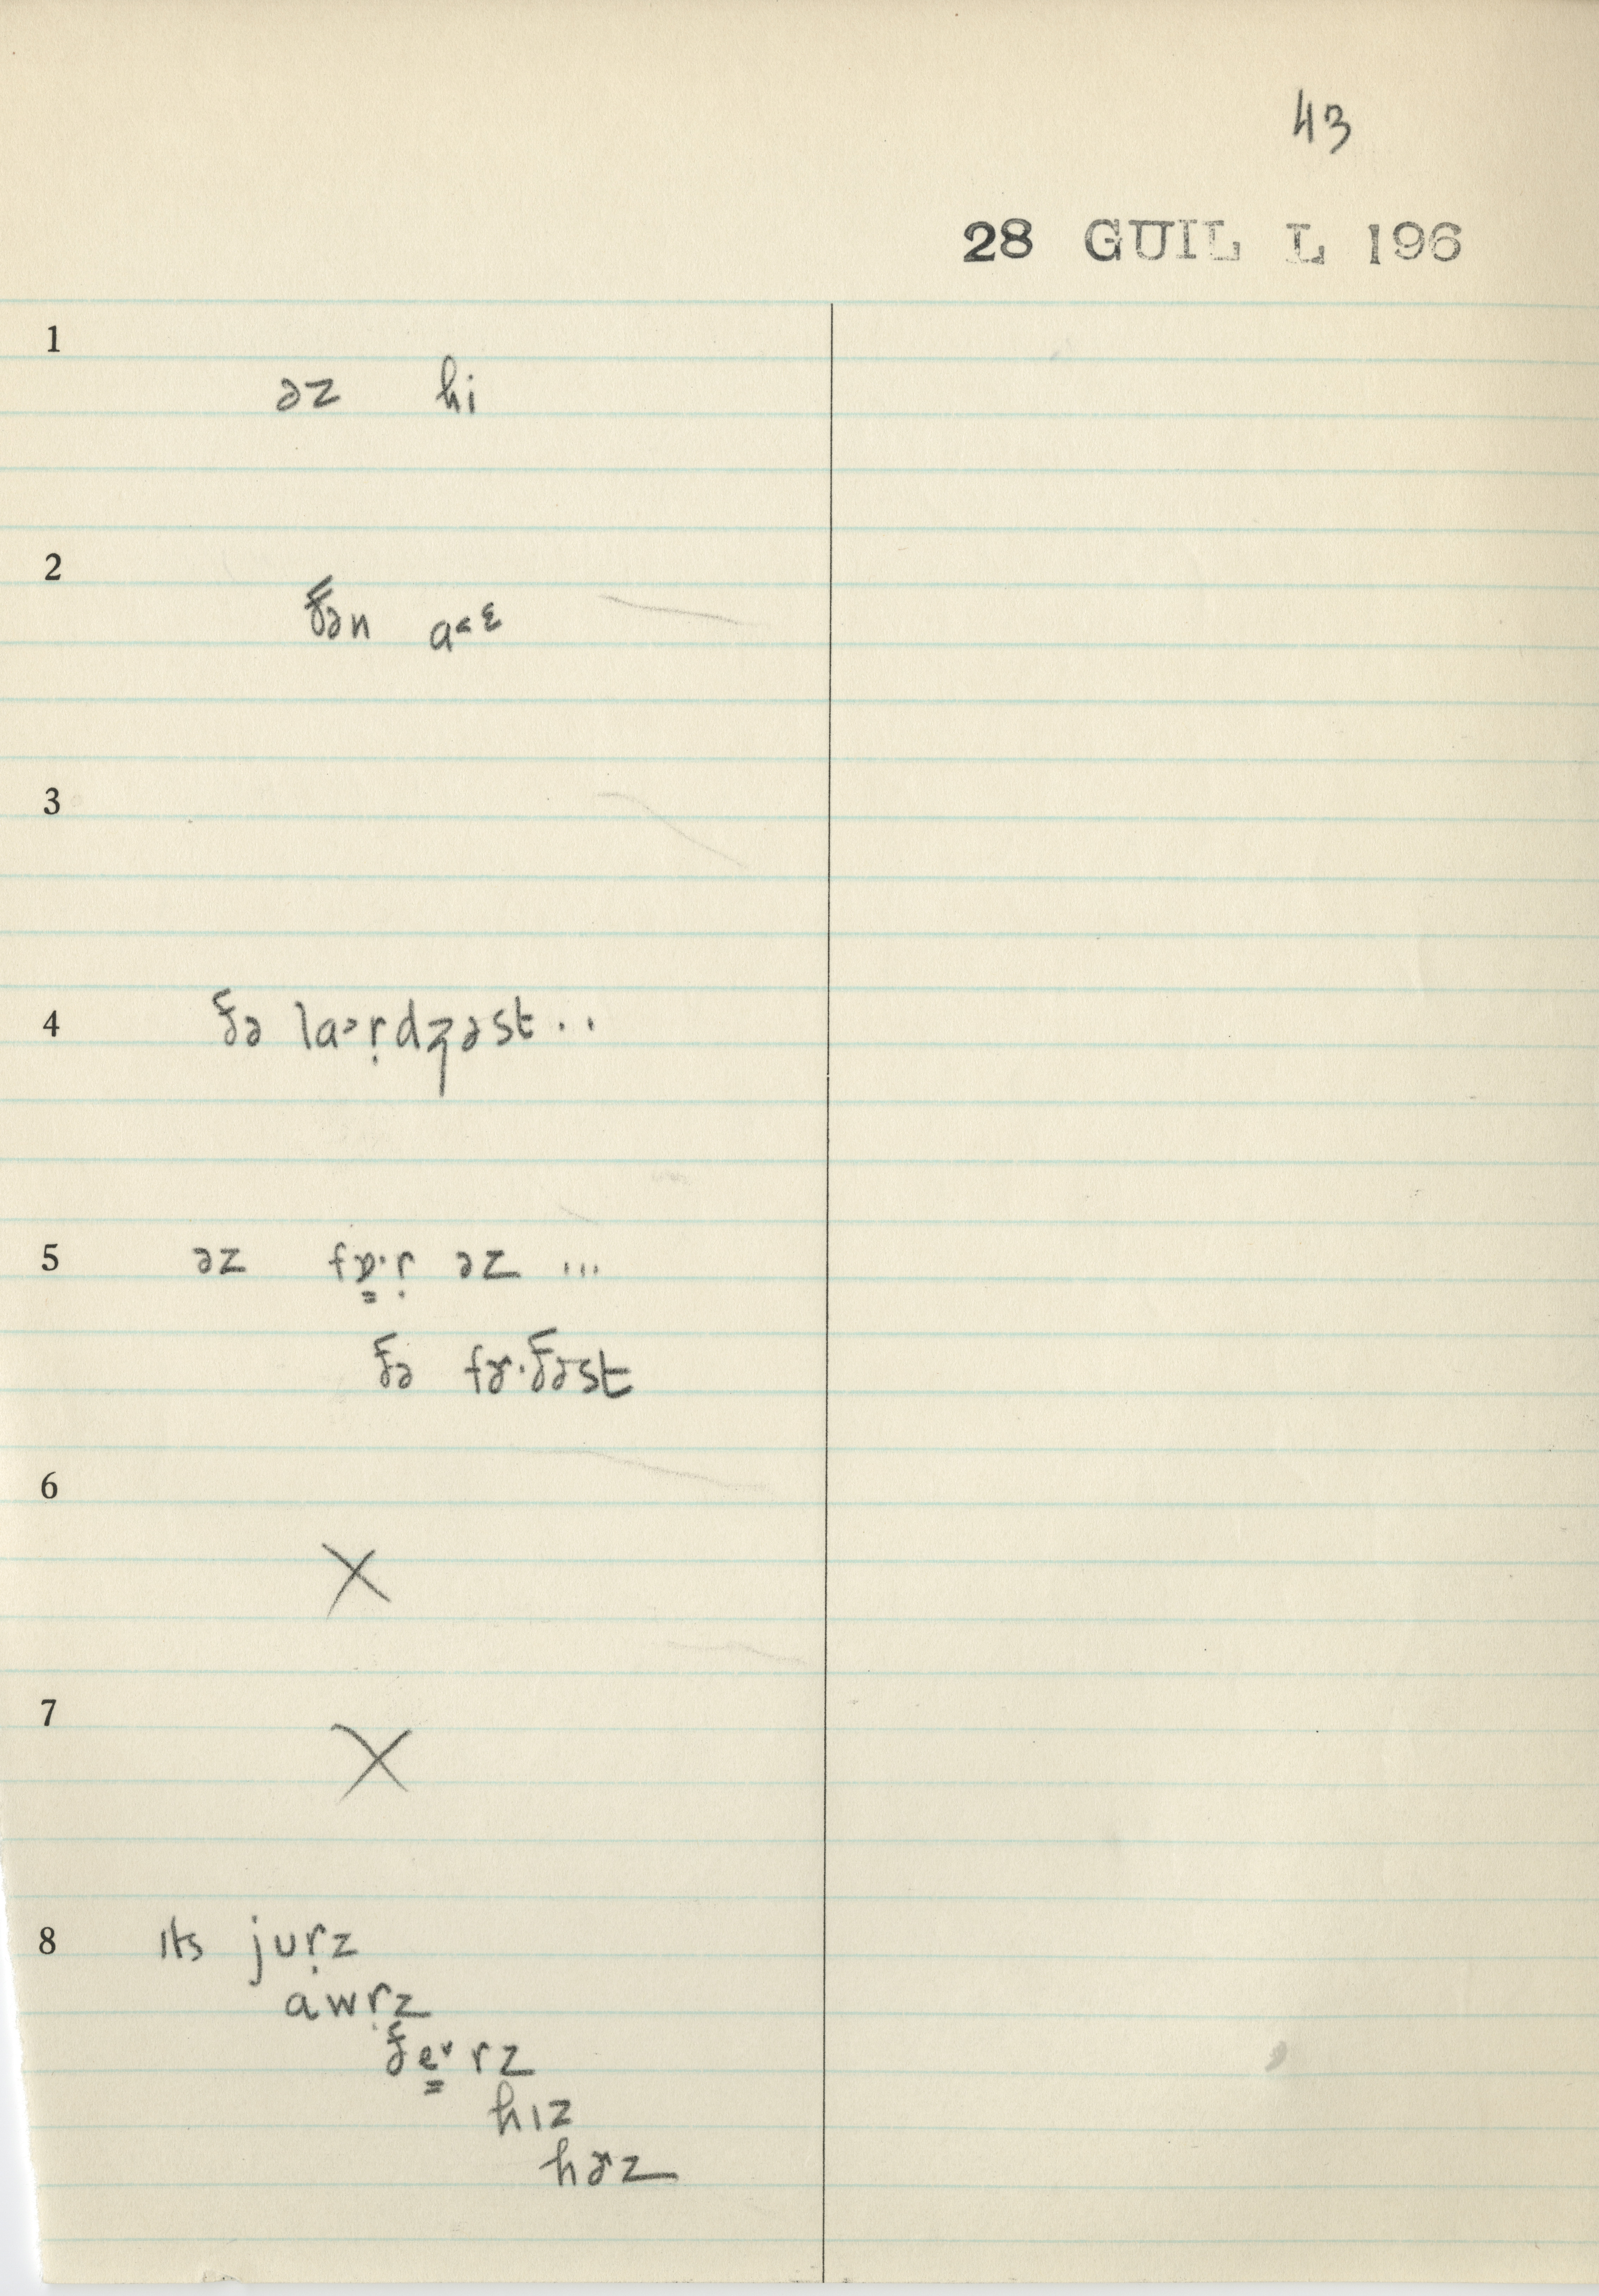 43
28 GUIL L 196
1
əz hi
2
ðən a˂ᵋ
3
4
ðə la˃ṛdʒəst ..
5
əz fɒ̳·ṛ əz ...
ðə fɚ·ðəst
6
X
7
X
8
ɪts juṛz
awṛz
ðe̳˅rz
hɪz
hɚz